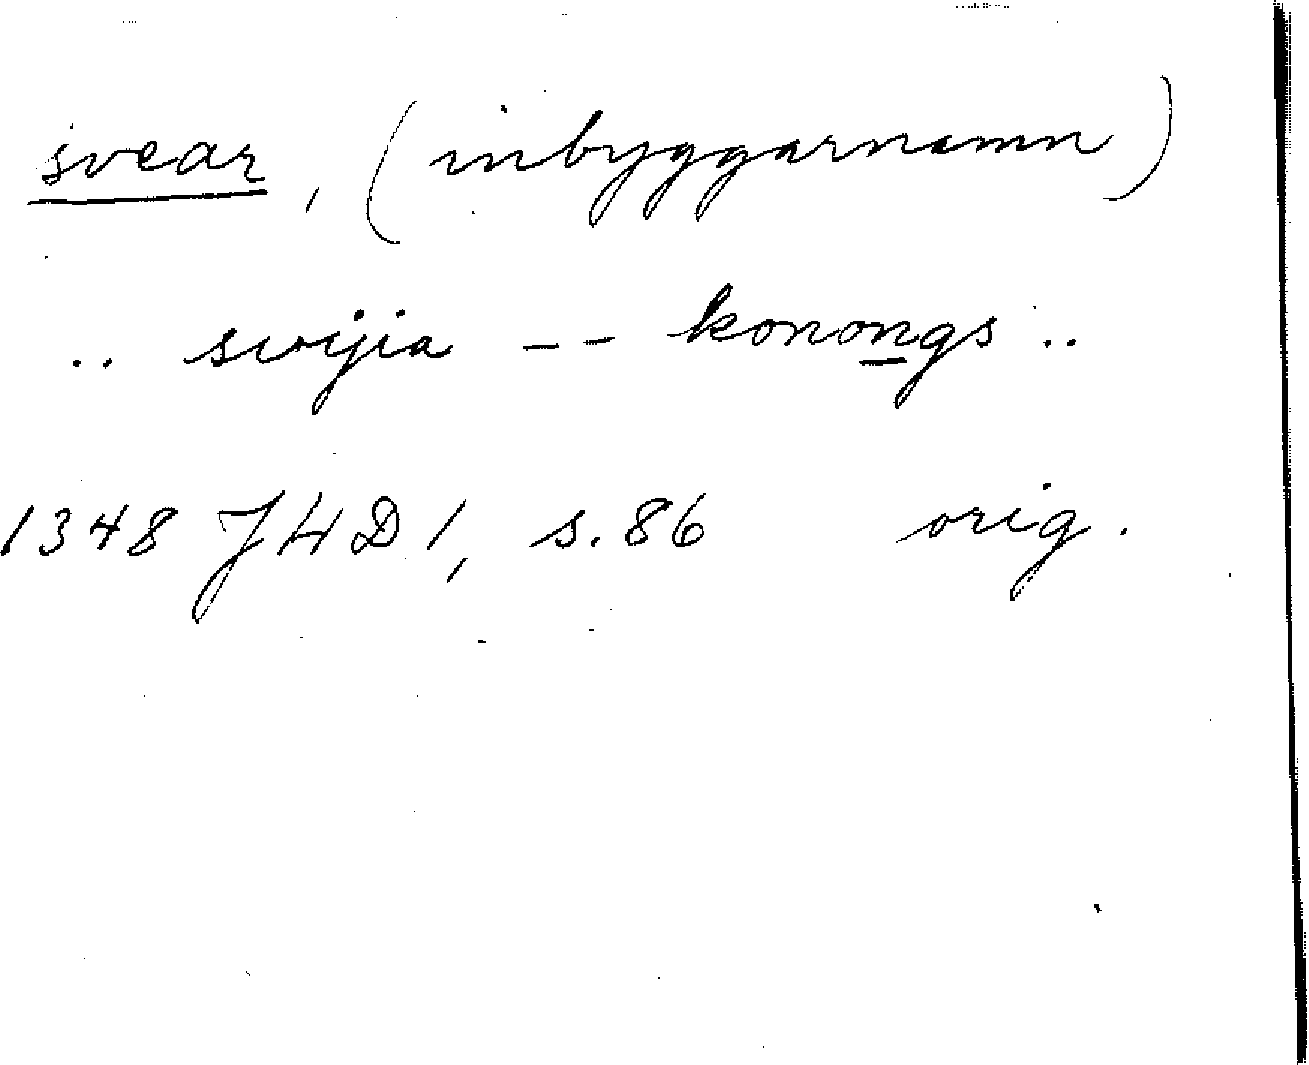 svear, (inbyggarnamn)
.. swijia -- konongs ..
1348 JHD 1, s. 86 orig.